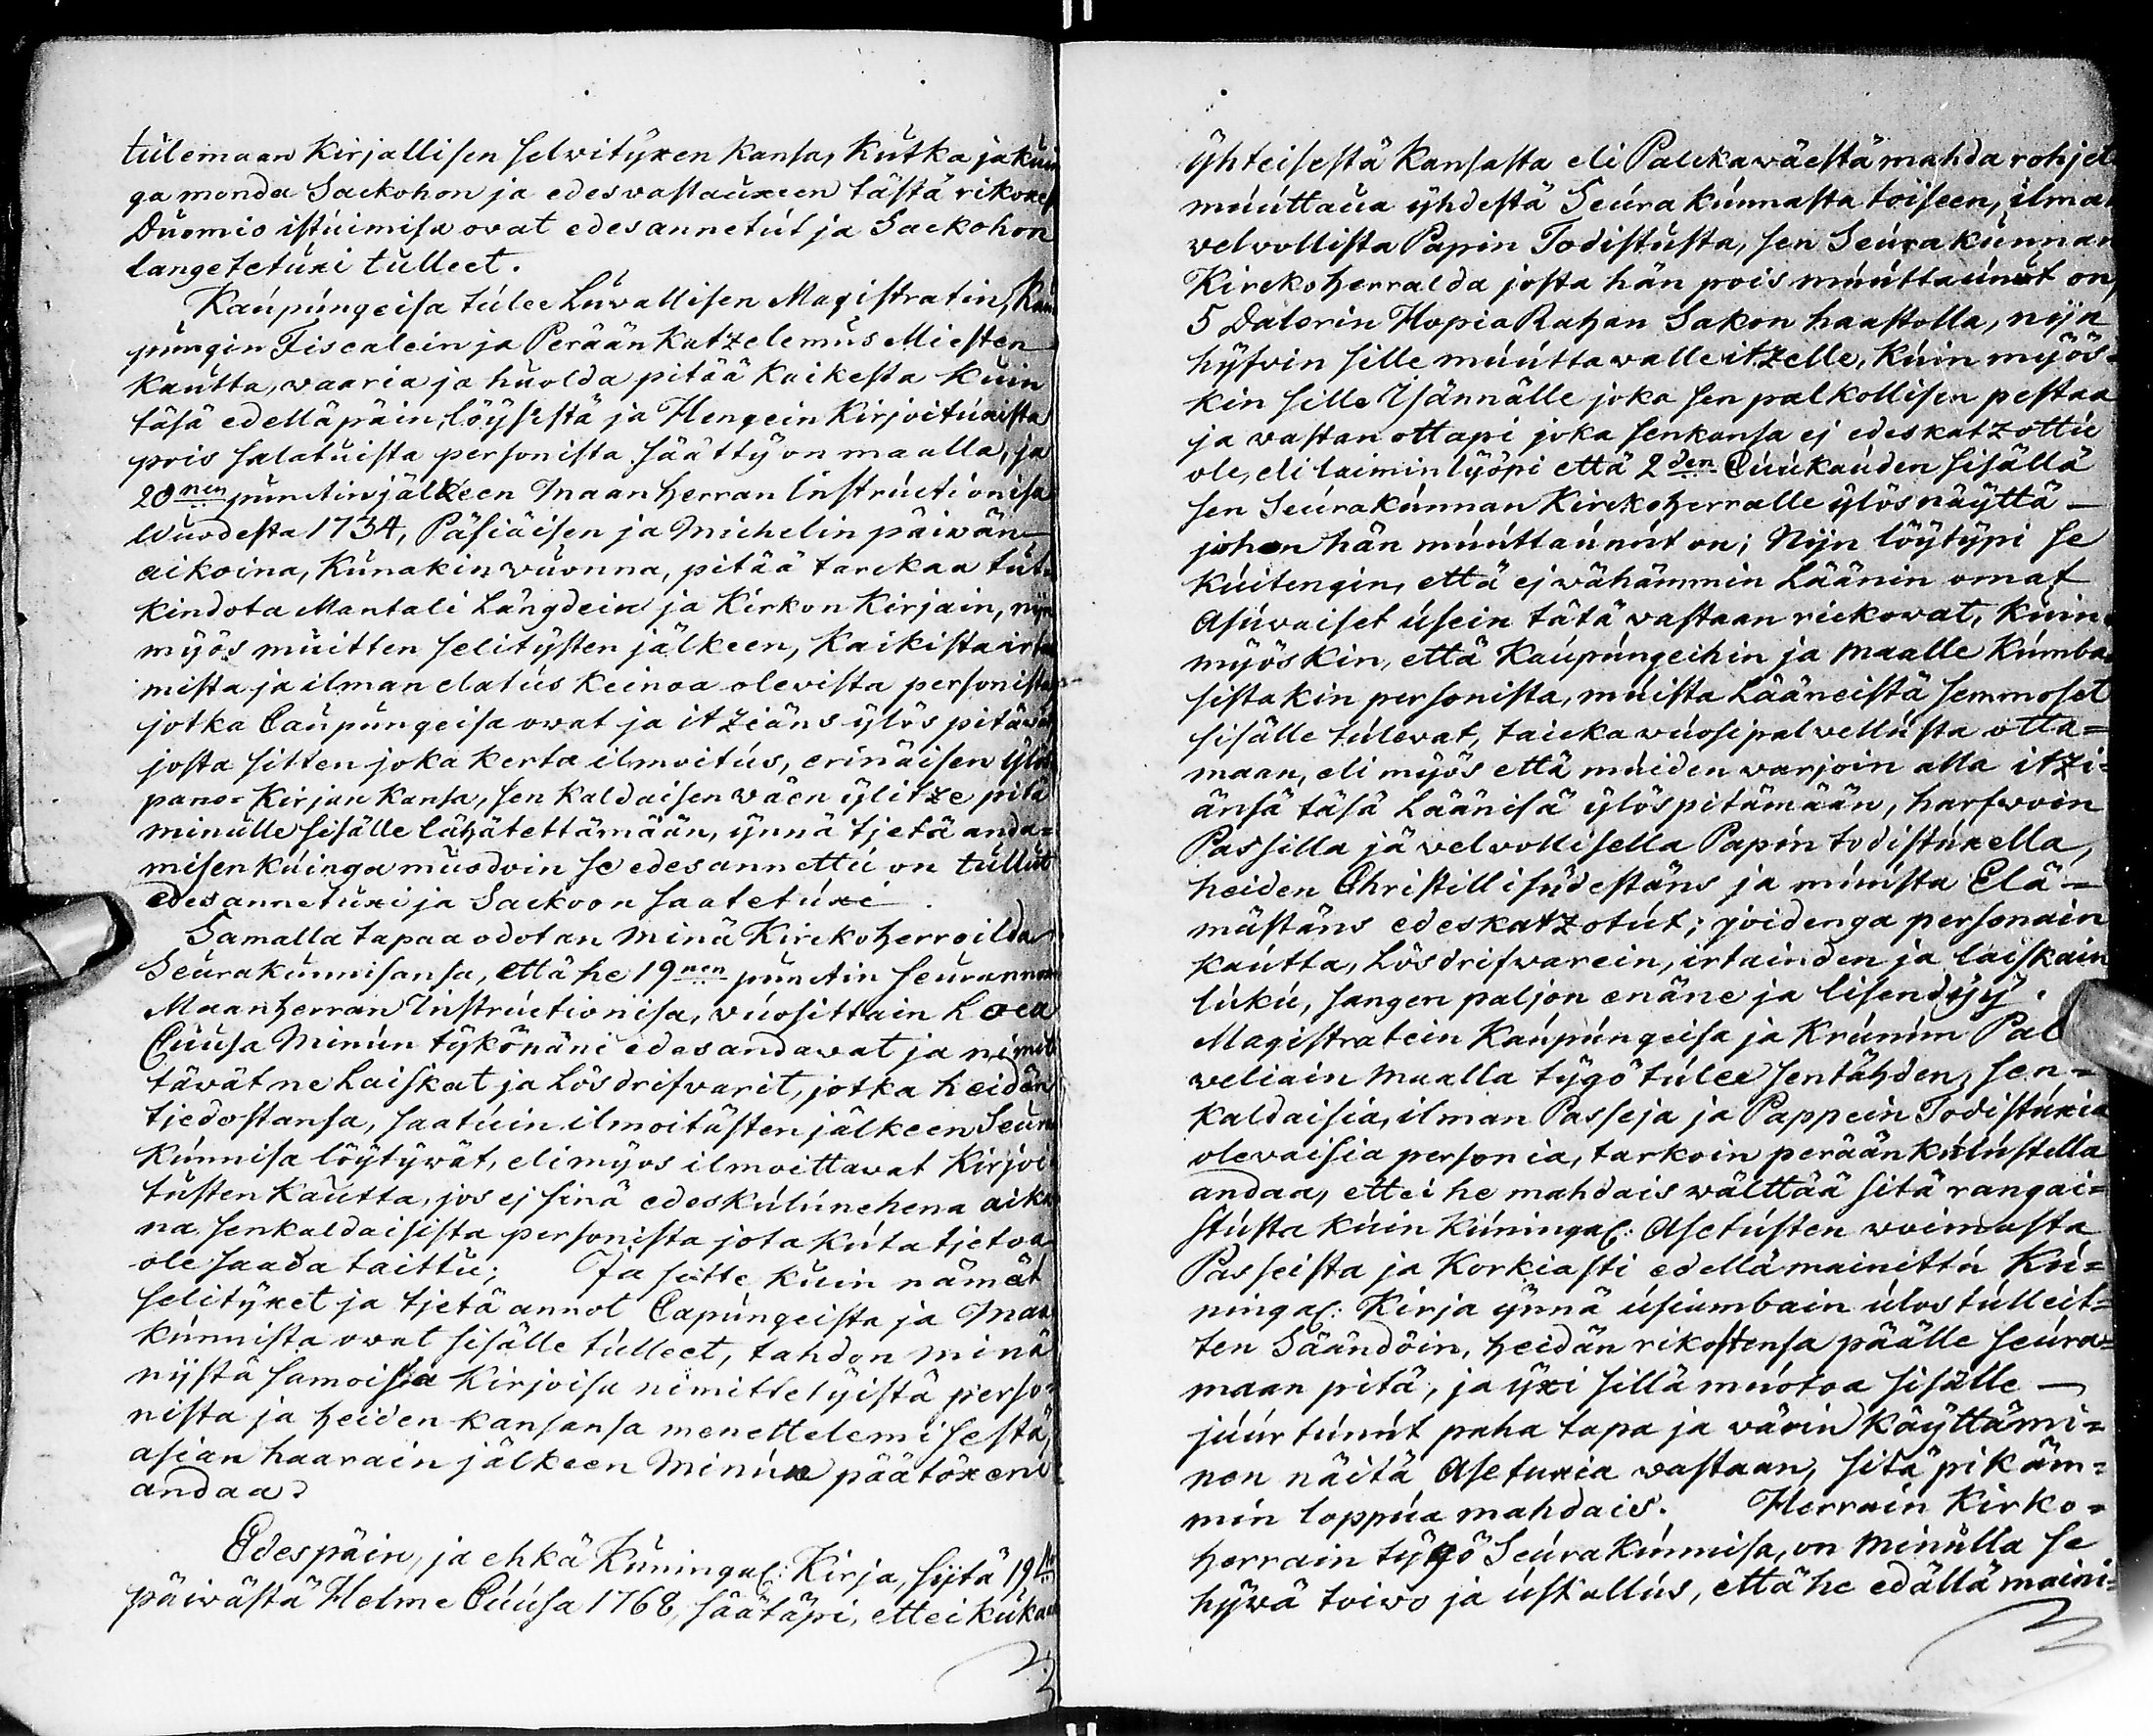 tulemaan Kirjallisen selwityxen kansa, kutka ja kuin
ga monda Sackohon ja edeswastauxeen tästä rikoxest
Duomio istuimisa owat edesannetut ja Sackohon
langetetuxi tulleet.
Kaupungeisa tulee Luwallisen Magistratin, Kau
pungin Fiscalein ja Perään katzelemus Miesten
kautta, waaria ja huolda pitää kaikesta kuin
täsä edelläpäin, löysistä ja Hengein Kirjoituxista
pois salatuista personista säätty on maalla, ja
20nen punctin jälkeen Maanherran Instructionisa
Wuodesta 1734, Pääsiäisen ja Michelin päiwän
aikoina, kunakin wuonna, pitää tarckaa tut-
kindota Mantali Längdein ja Kirkon Kirjain, nijn
myös muitten selitysten jälkeen, kaikista irta
mista ja ilman elatus keinoa olevista personista
jotka Caupungeisa owat ja itziäns ylös pitäwät
josta sitten joka kerta ilmoitus, erinäisen ylös
pano-Kirjan kansa, sen kaldaisen wäen ylitze pitä
minulle sisälle lähätettämään, ynnä tjetä anda=
misen kuinga muodoin se edesannettu on tullut
edesannetuxi ja Sackoon saatetuxi.
Samalla tapaa odotan minä Kirckoherroilda
Seurakunnisansa, että he 19nen punctin seuraunna
Maanherran Instructionisa, wuosittain Loca
Cuusa Minun tykönäni edesandawat ja nimit
täwät ne Laiskat ja Lösdrifvarit, jotka heidän
tjedostansa, saatuin ilmoitusten jälkeen Seura
kunnisa löytywät, eli myös ilmoittavat Kirjoi
tusten kautta, jos ej sinä edeskulunehena aika
na senkaldaisista personista jota kuta tjetoa
ole saada taittu; Ja sitte kuin nämät
selityxet ja tjetä annot Capungeista ja Maa
kunnista owat sisälle tulleet, tahdon minä
nijstä samoisa Kirjoisa nimittetyistä perso-
nista ja heiden kansansa menettelemisestä,
asian haarain jälkeen Minun päätöxeni
andaa.
Edespäin, ja ehkä Kuningal: Kirja, sijtä 19ta
päiwästä Helme Cuusa 1768, säätäpi, ettei kukaan
yhteisestä Kansasta eli Palckawäestä mahda rohjeta
muuttaua yhdestä Seurakunnasta toiseen, ilman
velvollista Papin Todistusta, sen Seurakunnan
Kirckoherralda josta hän pois muuttaunut on,
5 Dalerin Hopia Rahan Sakon haastolla, nijn
hyfvin sille muuttawalle itzelle, kuin myös-
kin sille Isännälle joka sen palkollisen pestaa
ja wastan ottapi joka senkansa ej edeskatzottu
ole, eli laiminlyöpi että 2den Cuukauden sisällä
sen Seurakunnan Kirckoherralle ylösnäyttä —
johon hän muuttaunut on; Nijn löytypi se
kuitengin, että ej wähämmin Läänin omat
Asuvaiset usein tätä wastaan rickowat, kuin
myöskin, että Kaupungeihin ja maalle kumba-
sistakin personista, muista Lääneistä semmoset
sisälle tulevat, taicka wuosipalvellusta otta=
maan, eli myös että muiden warjoin alla itzi-
änsä täsä Läänisä ylöspitämään, harfwoin
Passilla ja welwollisella Papin todistuxella,
heiden Christillisudestäns ja muusta Elä —
mästäns edeskatzotut; joidenga personain
kautta, Lösdrifwarein, irtainden ja laiskain
luku, sangen paljon enäne ja lisendyy.
Magistratein Kaupungeisa ja Krunun Pal
weliain Maalla tygö tulee sentähden, sen=
kaldaisia, ilman Passeja ja Pappein Todistuxia
olevaisia personia, tarkoin perään kulustella
andaa, ettei he mahdais wälttää sitä rangai=
stusta kuin Kuningal: Asetusten woimasta
Passeista ja Korkiasti edellämainittu Ku=
ningal: Kirja ynnä usiambain ulostulleit=
ten Säändöin, heidän rikostensa päälle seura=
maan pitä, ja yxi sillä muotoa sisälle —
juurtunut paha tapa ja wärin käyttämi=
nen näitä Asetuxia wastaan, sitä pikäm=
min loppua mahdais. Herrain Kirko=
herrain tygö Seurakunnisa, on minulla se
hywä toivo ja uskallus, että he edällä maini=